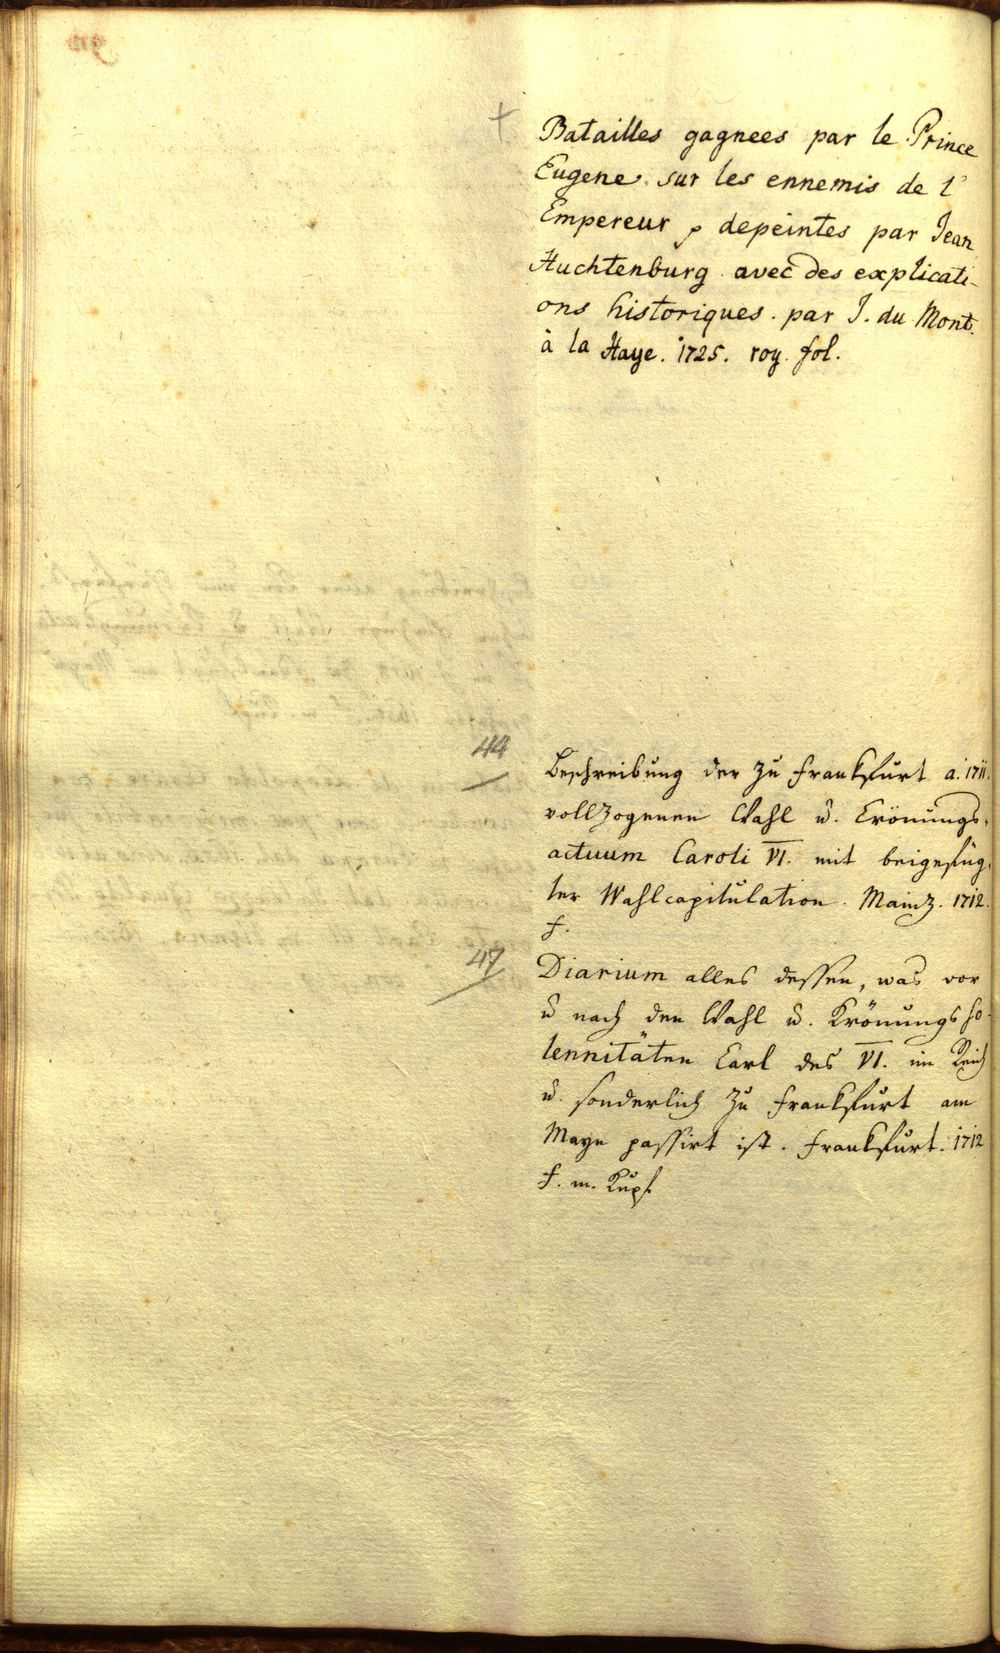 +
Batailles gagnees par le Prince
Eugene sur les ennemis de l'
Empereur depeintes par Jean
Huchtenburg avec des explicati-
ons historiques. par J. du Mont.
à la Haye. 1725. roy. fol.
44
Beschreibung der zu Frankfurt a. 1711.
vollzogenen Wahl u. Crönungs-
actuum Caroli VI. mit beigefüg-
ter Wahlcapitulation. Mainz. 1712.
f.
47
Diarium alles dessen, was vor
u nach den Wahl u. Krönungs so-
lennitäten Carl des VI. im Reich
u. sonderlich zu Frankfurt am
Mayn passirt ist. Frankfurt. 1712
f. m. Kupf.